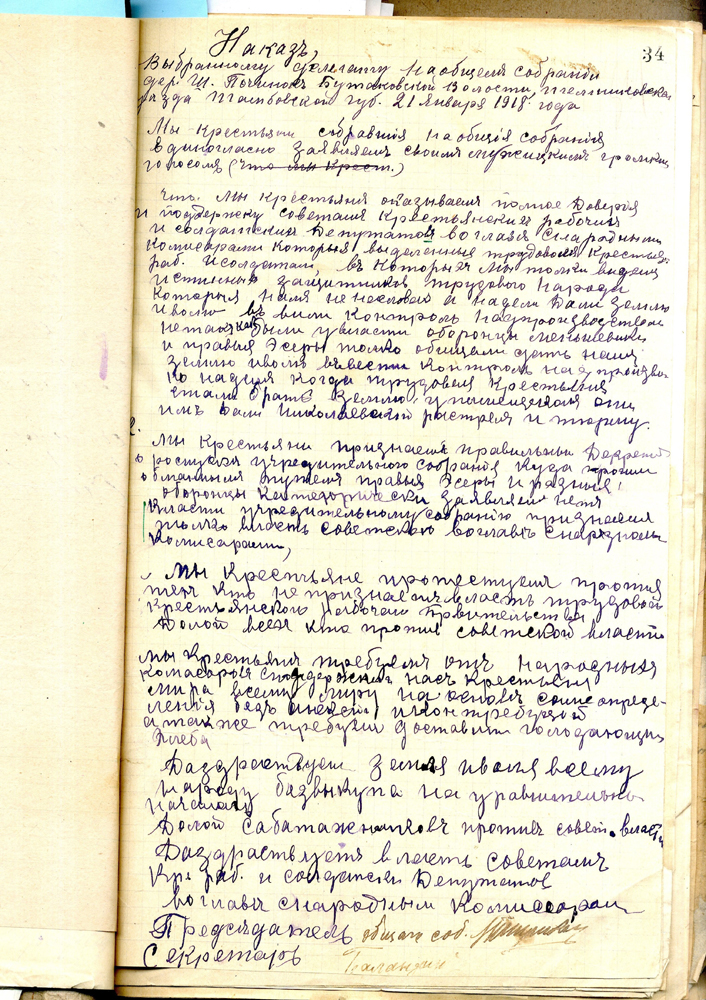 34
Наказъ,
Выбранному делегату на общем собрании
дер. Ш. Починок Бутаковской Волости,
уезда Тамбовской губ. 21 Января 1918 года
Мы крестьяни собравшия на общия собрания
единогласно заявляем своим мужицким громким
голосом (что мы Крест.)
что. Мы крестьяня оказываем полное Доверия
и поддержку советам Крестьянских рабочих
и солдатских Депутатов во главе с народными
комисарами которыя выделенныя трудовым Крестья.
раб. и солдатам, въ которых мы только видим
истиных защитников трудового народа
которыя нам не на словах и надели Дали землю
и волю ввели контроль над производством
не так как были у власти оборонцы меньшевики
и правыя Эсеры только обещали дать нам
землю и волю ввести контроль над произво
но на деле когда трудовыя Крестьяня
стали брать землю у помещиков они
имъ дали Николаевский растрел и тюрму.
2.
Мы Крестьяни признаем правильным Декрет
о роспуске учредительного собрания куда прошли
обманным путем правыя Эсеры и разныя
оборонцы категорически заявляем нет
власти учредительному собранию признаем
только власть советскою во главе с народным
комисарами,
Мы Крестьяне протестуем против
тех кто не признает власть трудовой
крестьянского рабочаго Правительства
Долой всех кто против советской власти
Мы Крестьяня требуем отъ народных
комасаров поддержки нас крестьян
мира всему миру на основе самоопреде-
ления безъ анексий и контребуций
а также требуем доставить голодающим
хлеба
Даздраствует Земля и воля всему
народу безвыкупа на уравнительных
началах
Долой Сабатажников против совет. власти
Даздраствует власть советам
Кр. раб. и солдатски Депутатов
во главе с народным Комиссарам
Председатель общаго соб.
Секретарь Баландин